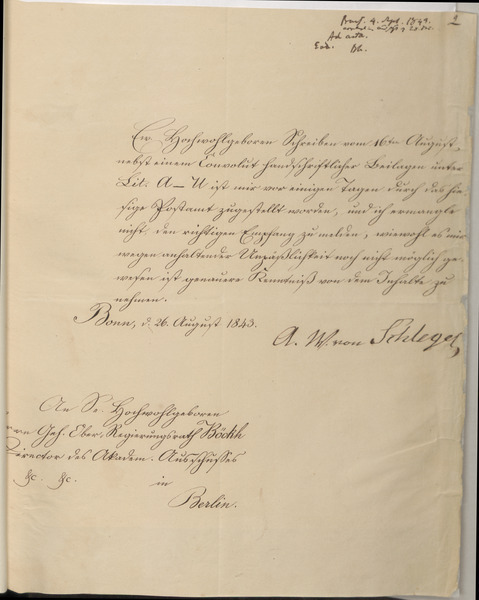 2
4. Sept. 1843.
Ad acta.
Bh.
Ew. Hochwohlgeboren Schreiben vom 16ten August,
nebst einem Convolut handschriftlicher Beilagen unter
Lit. A – U ist mir vor einigen Tagen durch das hie-
sige Postamt zugestellt worden, und ich ermangle
nicht den richtigen Empfang zu melden, wiewohl es mir
wegen anhaltender Unpäßlichkeit noch nicht möglich ge-
wesen ist genauere Kenntniß von dem Inhalte zu
nehmen.
Bonn, d. 26. August 1843.
A. W. von Schlegel
An Se. Hochwohlgeboren
Geh. Ober-Regierungsrath Böckh
Director des Akadem. Ausschusses
&c. &c. in
Berlin.